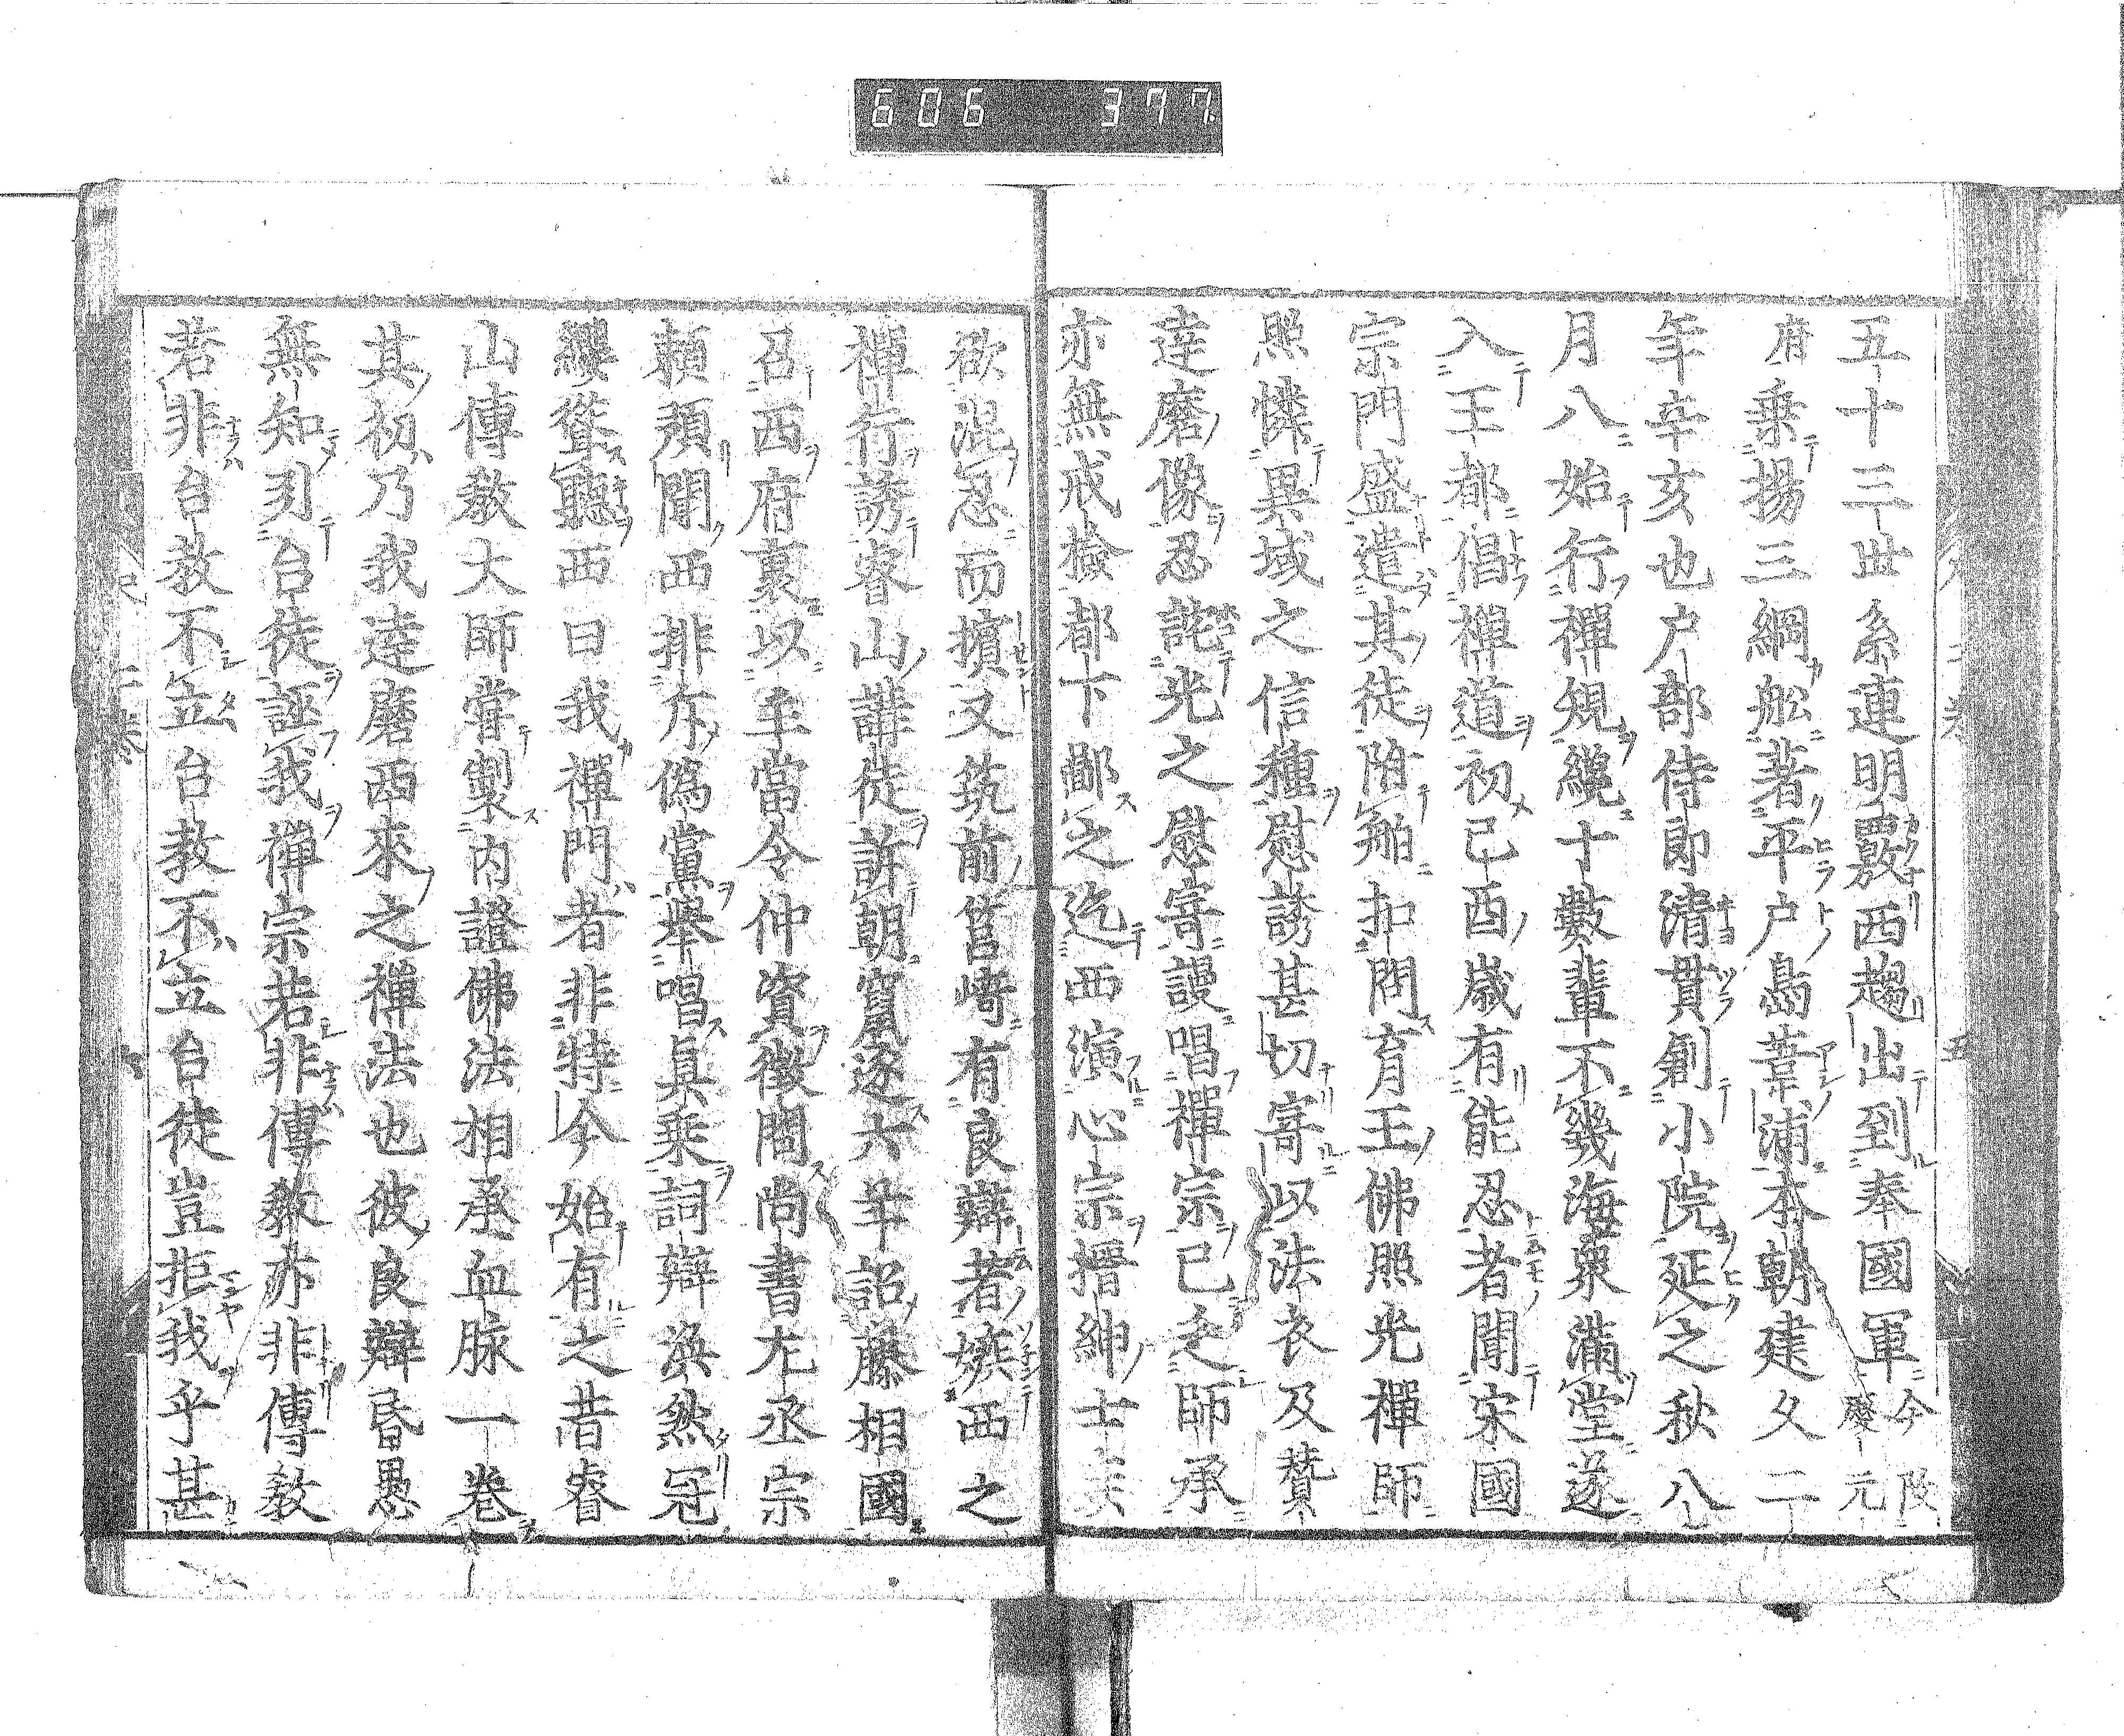 606 377
五十三世系連明覈西趨出到奉國軍今改慶元
府乗揚三綱舩著平戸島葦浦本朝建久二
年辛亥也戸部侍郎清貫創小院延之秋八
月八始行禪規纔十數輩不幾海衆滿堂遂
入王都倡禪道初己酉歳有能忍者聞宋國
宗門盛遣其徒陥舶扣問育王佛照光禪師
照憐異域之信種慰誘甚切寄以法衣及賛
達磨像忍詫光之慰寄謾唱禪宗已乏師承
亦無戒撿都下鄙之迄西演心宗搢紳士夫
欲混忍而擯又筑前筥﨑有良辯者嫉西之
禪行誘睿山講徒訴朝竄逐六年詔藤相國
召西府裏以奎當令仲資徴問尚書左丞宗
頼預聞西排斥偽黨擧唱眞乗詞辯渙然冠
纓聳聽西曰我禪門者非特今始有之昔睿
山傳教大師甞製内證佛法相承血脉一巻
其初乃我達磨西來之禪法也彼良辯昏愚
無知引台徒誣我禪宗若非傳教亦非傳教
若非台教不立台教不立台徒豈拒我乎甚